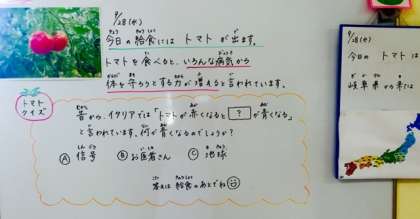 9/28(水)
今日の給食には トマト が 出ます。
トマトを 食べると、いろんな病気から
体を 守ろうとする力が 増えると言われています。
トマト
クイズ
昔から、イタリアでは「トマトが 赤くなると ? が 青くなる」
と言われています。何が 青くなるのでしょうか?
A 信号 B お医者さん C 地球
答えは 給食のあとでね
9/28(水)
今日の トマト は
岐阜県から来た